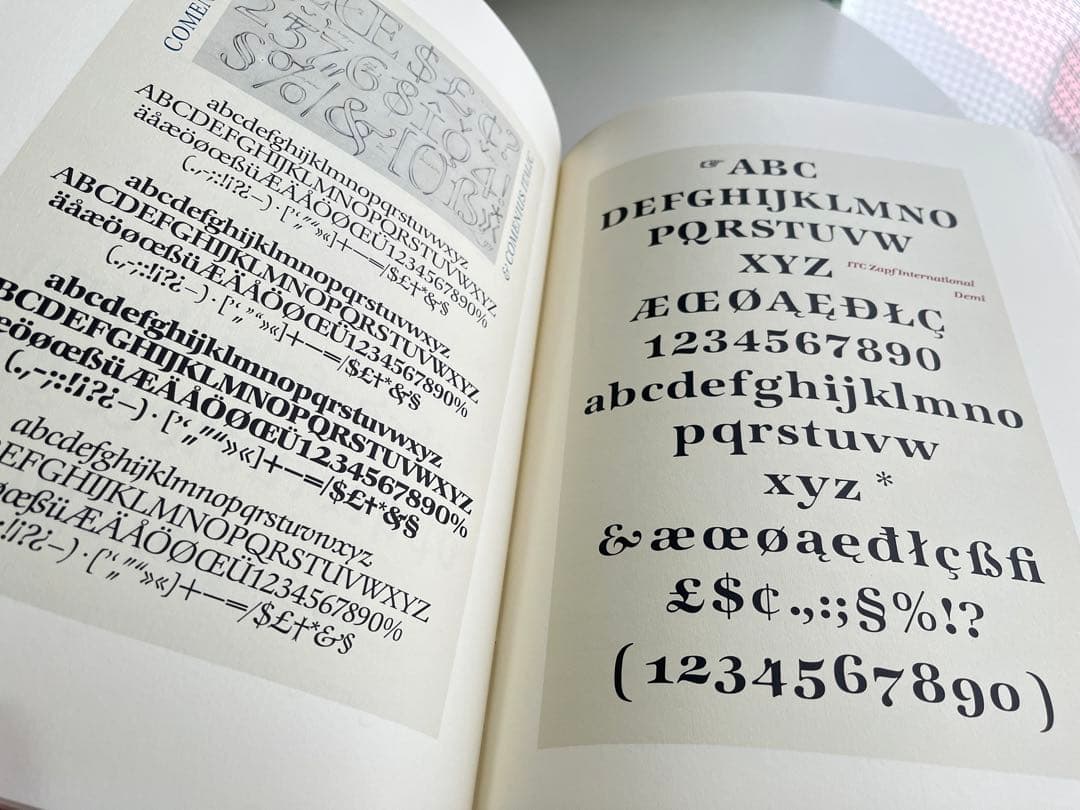 COMEN
Œ $ £ ¢ ?
abcdefghijklmnopqrstuvwxyz
ABCDEFGHIJKLMNOPQRSTUVWXYZ
äåæöøœßüÆÄÅÖØŒÜ1234567890%
(.,-;:!¡?¿–)·[’‘„”“»«]+—=/$£†*&§
abcdefghijklmnopqrstuvwxyz
ABCDEFGHIJKLMNOPQRSTUVWXYZ
äåæöøœßüÆÄÅÖØŒÜ1234567890%
(.,-;:!¡?¿–)·[’‘„”“»«]+—=/$£†*&§
abcdefghijklmnopqrstuvwxyz
BCDEFGHIJKLMNOPQRSTUVWXYZ
æöøœßüÆÄÅÖØŒÜ1234567890%
(.,-;:!¡?¿–)·[’‘„”“»«]+—=/$£†*&§
abcdefghijklmnopqrstuvwxyz
EFGHIJKLMNOPQRSTUVWXYZ
øœßüÆÄÅÖØŒÜ1234567890%
:!¡?¿–)·[’‘„”“»«]+—=/$£†*&§
& COMENIUS
☞ ABC
DEFGHIJKLMNO
PQRSTUVW
XYZ
ITC Zapf International
Demi
ÆŒØĄĘĐŁÇ
1234567890
abcdefghijklmno
pqrstuvw
xyz *
&æœøąęđłçßfi
£$¢.,:;§%!?
(1234567890)